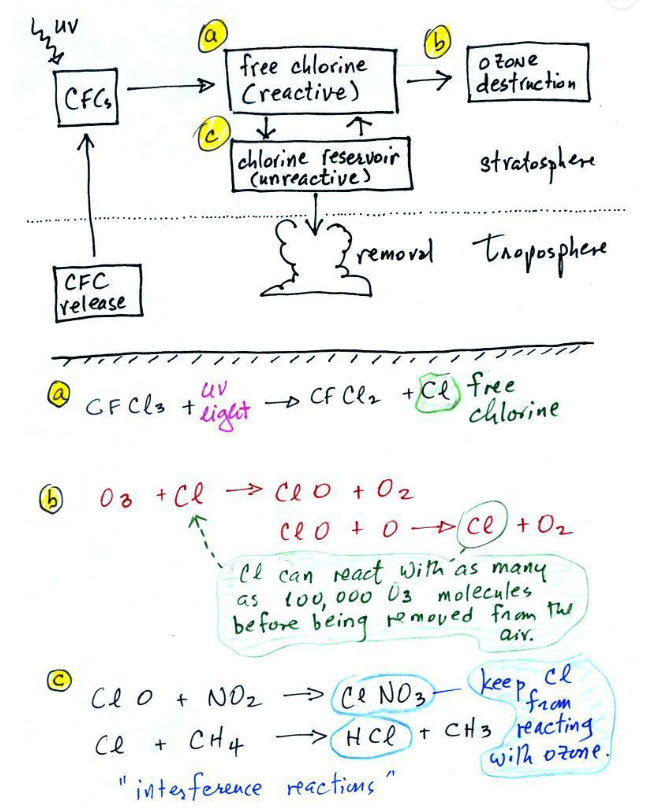 UV
CFCs
a
free chlorine
(reactive)
b
ozone
destruction
c
chlorine reservoir
(unreactive)
stratosphere
removal
troposphere
CFC
release
a CFCl3 + uv light → CFCl2 + Cl free chlorine
b O3 + Cl → ClO + O2
ClO + O → Cl + O2
Cl can react with as many
as 100,000 O3 molecules
before being removed from the
air.
c
ClO + NO2 → ClNO3
Cl + CH4 → HCl + CH3
"interference reactions"
keep Cl
from
reacting
with ozone.